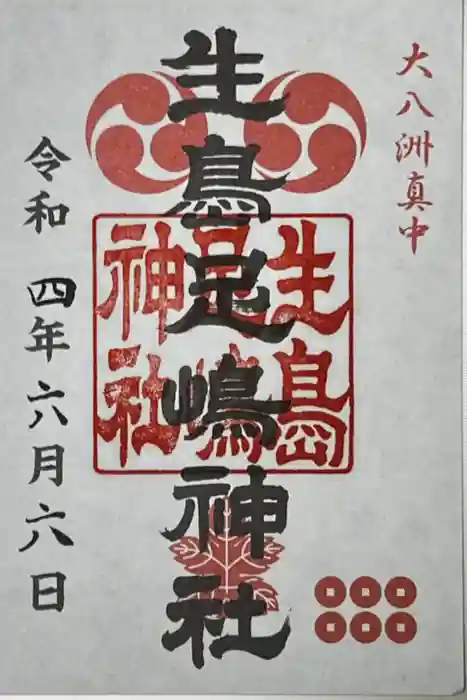 大八洲真中
生島足嶋神社
生島足嶋神社
令和 四年六月六日